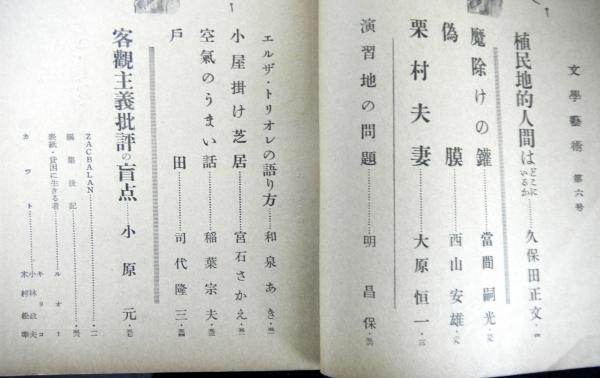 文學藝術 第六号
植民地的人間はどこにいるか………久保田正文
魔除けの鑵………當間嗣光
偽膜………西山安雄
栗村夫妻………大原恒一
演習地の問題………明昌保
エルザ・トリオレの語り方………和泉あき
小屋掛け芝居………宮石さかえ
空氣のうまい話………稲葉宗夫
戸田………司代隆三
客觀主義批評の盲点………小原元
ZACBALAN
編集後記
表紙・貧困に生きる者………ルオー
カット………キリコ
小林政夫